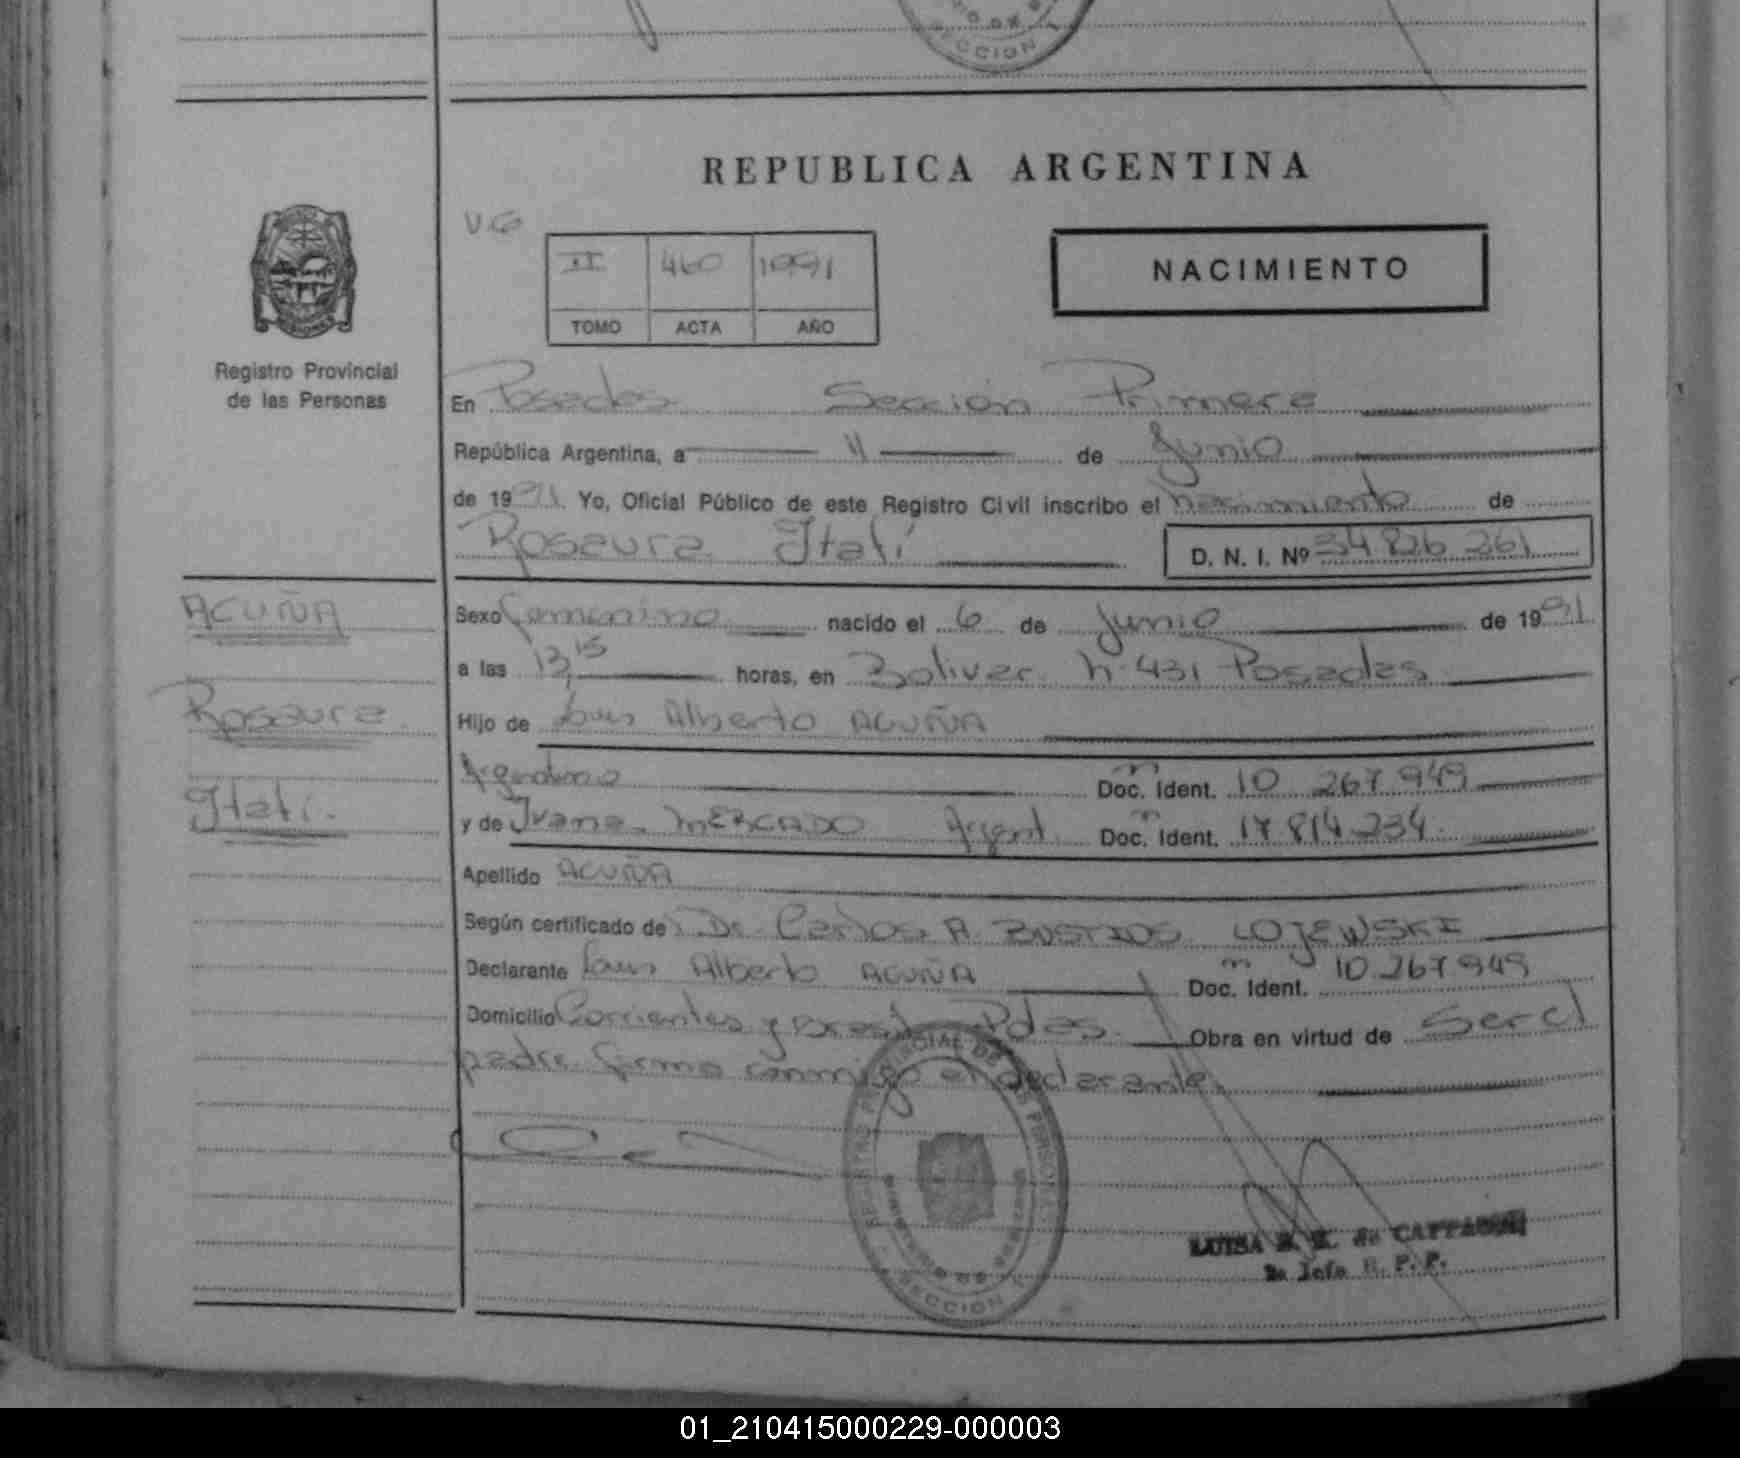 SECCION 1
REPUBLICA ARGENTINA
V.G
II 460 1991
TOMO ACTA AÑO
NACIMIENTO
MISIONES
Registro Provincial
de las Personas
En Posadas Sección Primera
República Argentina, a 11 de Junio
de 1991 Yo, Oficial Público de este Registro Civil inscribo el nacimiento de
Rosaura Itatí D. N. I. Nº 34 826 261
ACUÑA
Rosaura
Itatí.
Sexo femenino nacido el 6 de Junio de 1991
a las 13,15 horas, en Bolivar n. 431 Posadas
Hijo de Luis Alberto ACUÑA
Argentino Doc. Ident. 10 267 949
y de Juana MERCADO Argent. Doc. Ident. 17 814 234
Apellido ACUÑA
Según certificado de Dr. Carlos A. BUSTIOS LOJEWSKI
Declarante Luis Alberto ACUÑA Doc. Ident. 10.267.949
Domicilio Corrientes y Brasil Pdas. Obra en virtud de Ser el
padre firma conmigo el declarante.
REGISTRO PROVINCIAL DE LAS PERSONAS
SECCION 1
LUISA de
2a Jefe R. P. P.
01_210415000229-000003